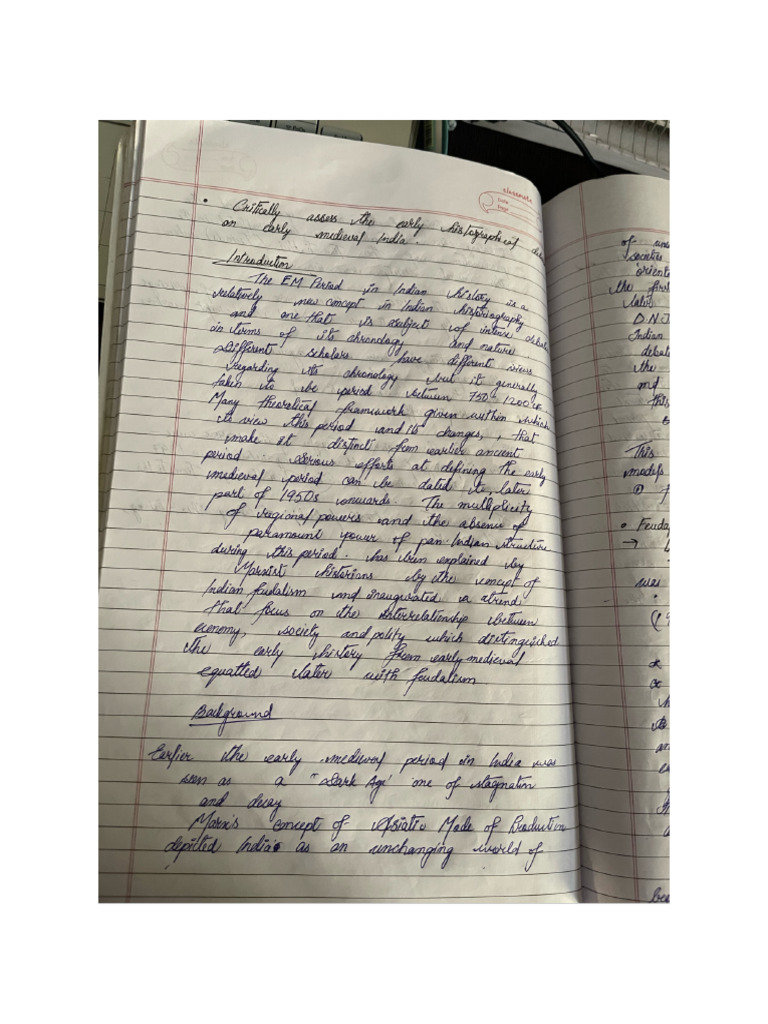 classmate
Date
Page
• Critically assess the early histographical de
on early medieval India.
Introduction
The EM Period in Indian history is a
relatively new concept in Indian historiography
and one that is asubject of intense debate
in terms of its chronology and nature
Different scholars have different views
regarding its chronology but it generally
taken to be period between 750 1200 ce
Many theoretical framework given within which
to view this period and its changes, that
make it distinct from earlier ancient
period Serious efforts at defining the early
medieval period can be dated to later
part of 1950s onwards. The multiplicity
of regional powers and the absence of
paramount power of pan-Indian structure
during this period. has been explained by
Marxist historians by the concept of
Indian fudalism and inaugurated a trend
that focus on the interrelationship between
economy, society and polity which distinguished
the early history from early medieval
equatted later with feudalism
Background
Earlier the early medieval period in India was
seen as a "Dark Age' one of stagnation
and decay
Marx's concept of Asiatic Mode of Production
depited India as an unchanging world of
of
societies
orient
the first
later
D.N.J
Indian
debat
the
and
this
This
models
①
• Feuda
→
was